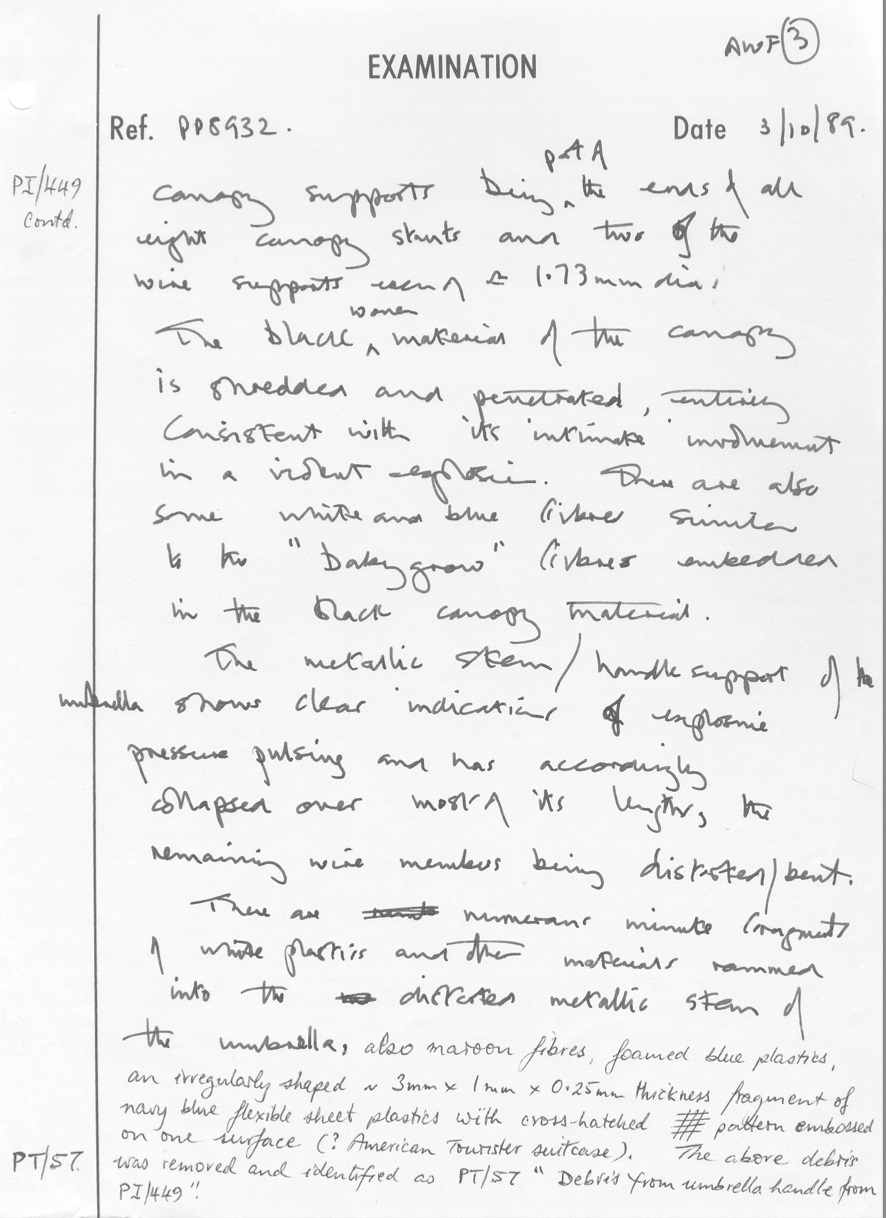 AWF 3
EXAMINATION
Ref. PP8932. Date 3/10/89.
PI/449
Contd.
part A
canopy supports being the ends of all
eight canopy struts and two of the
wire supports each of ≏ 1.73mm dia.
woven
The black material of the canopy
is shredded and penetrated, entirely
consistent with its intimate involvement
in a violent explosion. There are also
some white and blue fibres similar
to the "babygrow" fibres embedded
in the black canopy material.
The metallic stem/handle support of the
umbrella shows clear indications of explosive
pressure pulsing and has accordingly
collapsed over most of its length, the
remaining wire members being distorted/bent.
There are numerous minute fragments
of white plastics and other materials rammed
into the distorted metallic stem of
the umbrella, also maroon fibres, foamed blue plastics,
an irregularly shaped ~ 3mm x 1mm x 0.25mm thickness fragment of
navy blue flexible sheet plastics with cross-hatched pattern embossed
on one surface (? American Tourister suitcase). The above debris
PT/57. was removed and identified as PT/57 "Debris from umbrella handle from
PI/449".